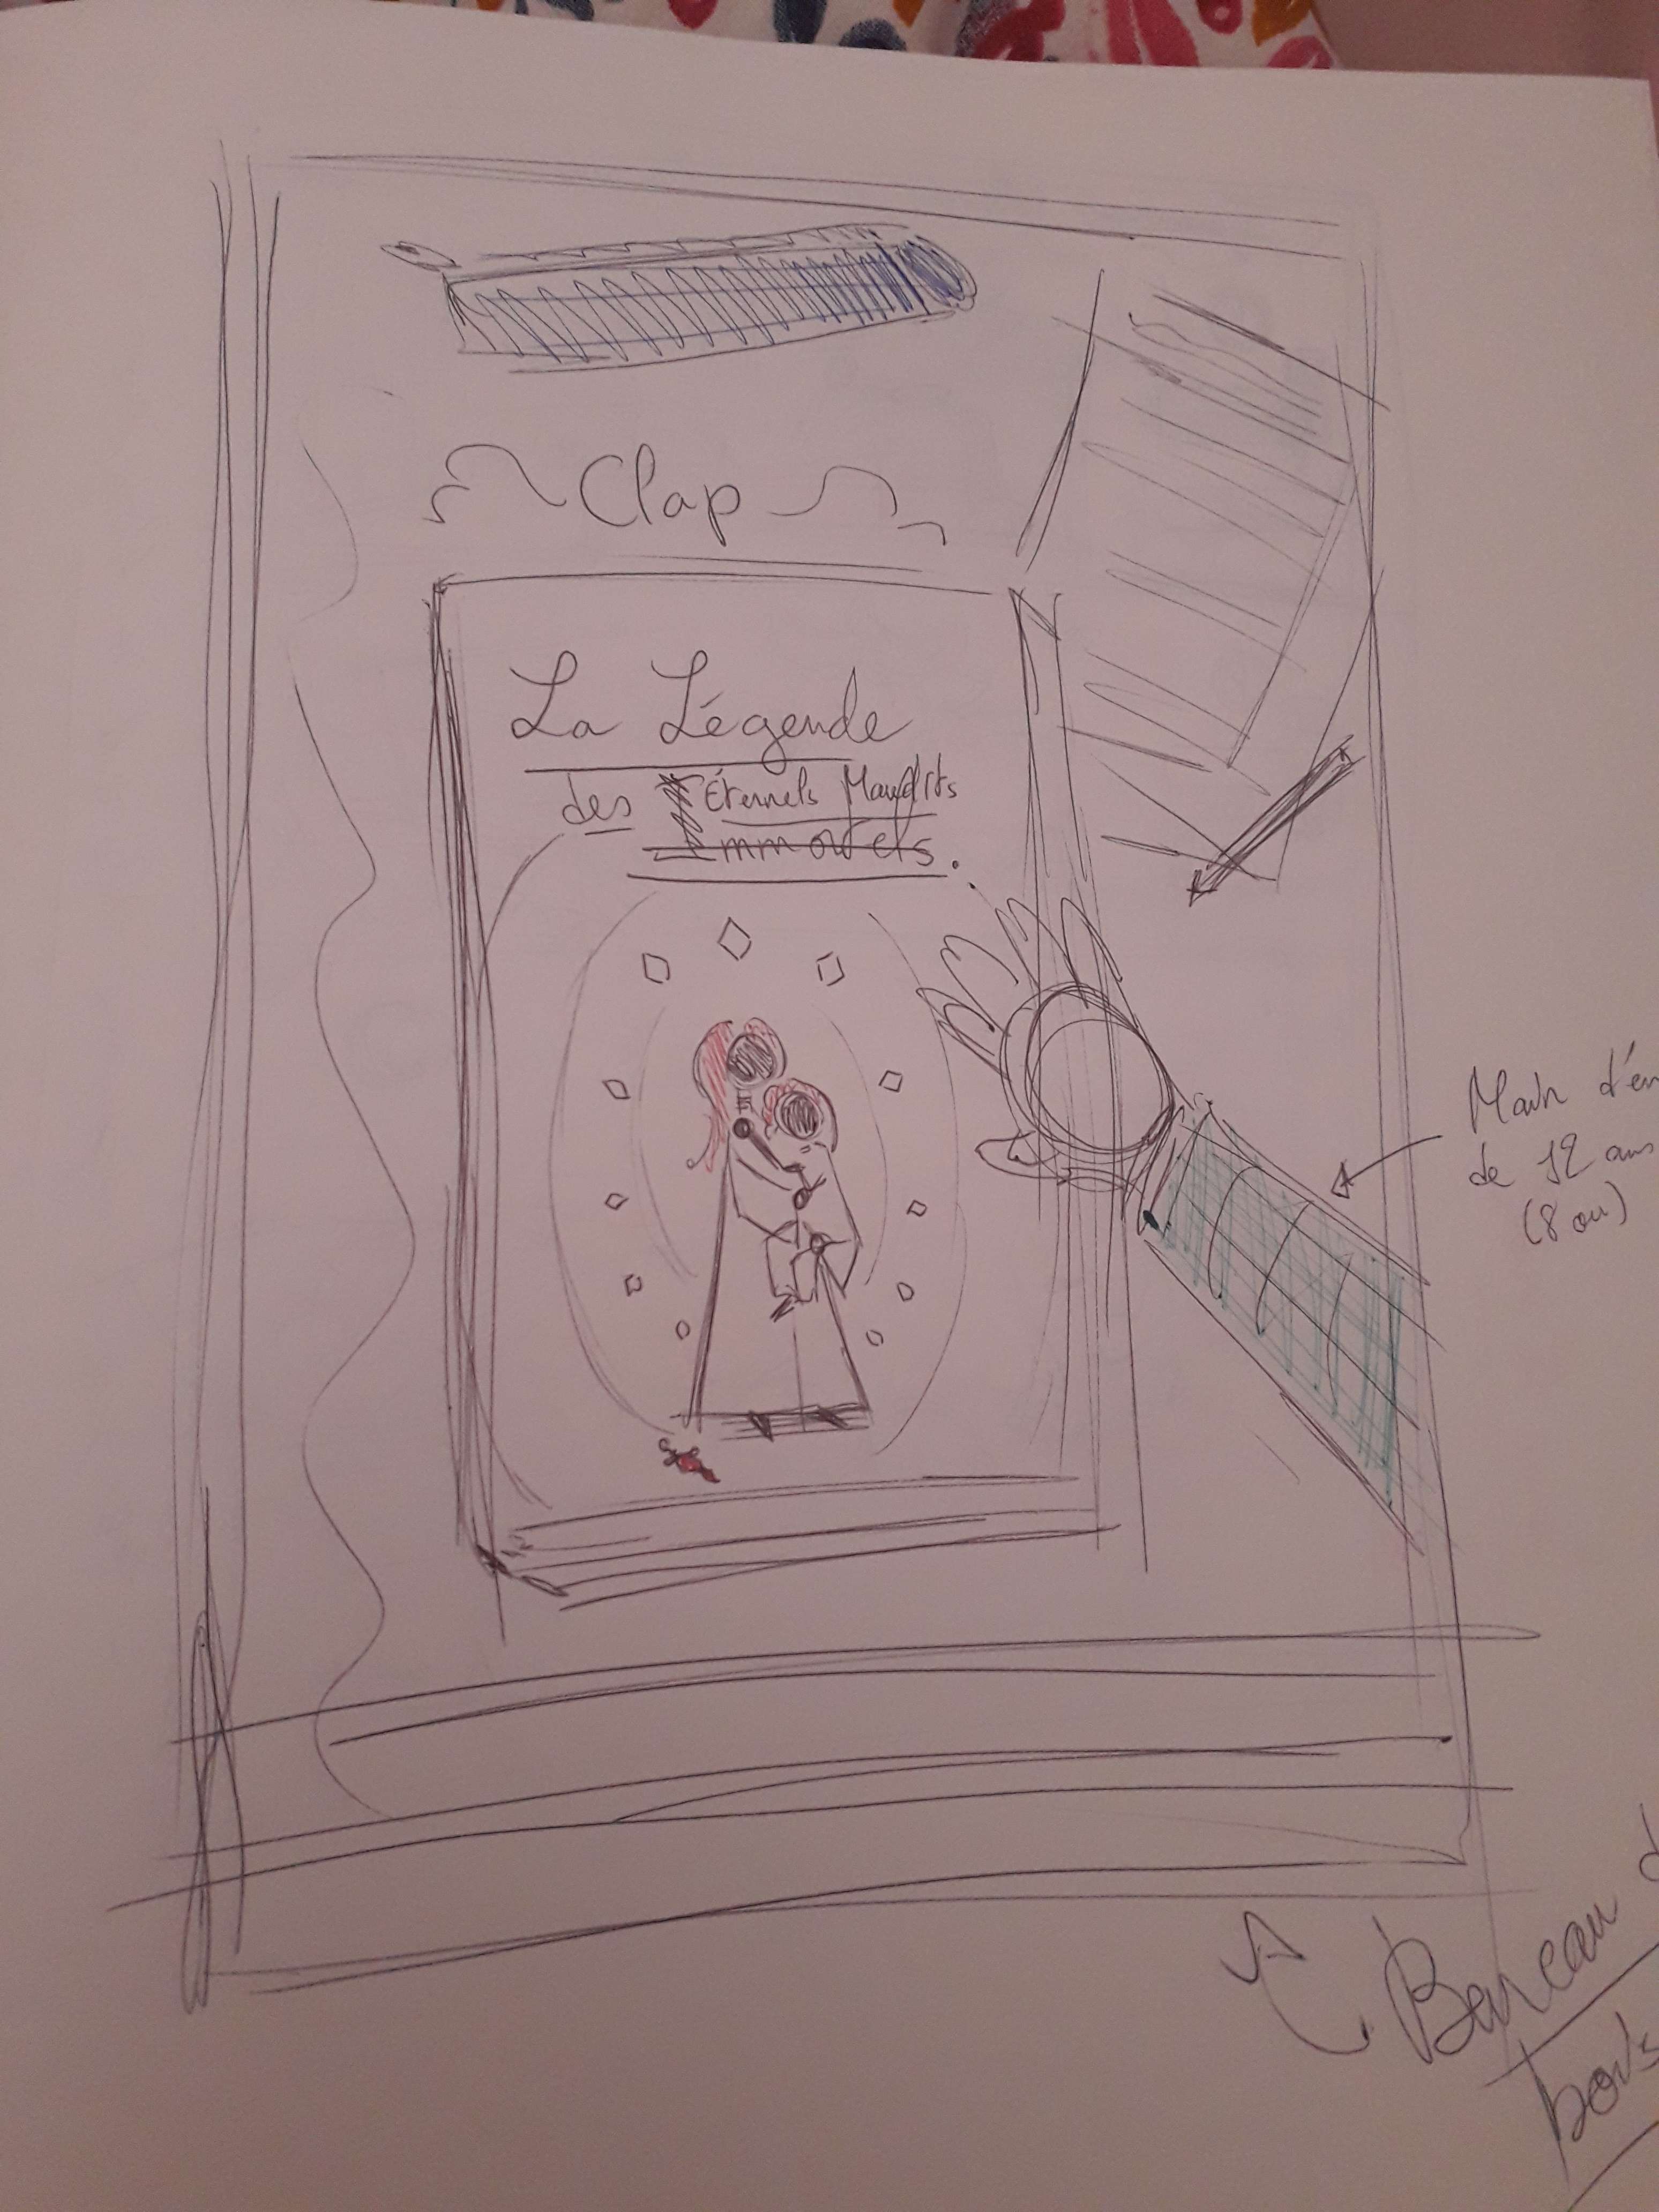 Clap
La Légende
des Éternels Maudits
Immortels.
Main d'en
de 12 ans
(8 ou)
Bureau d
bois